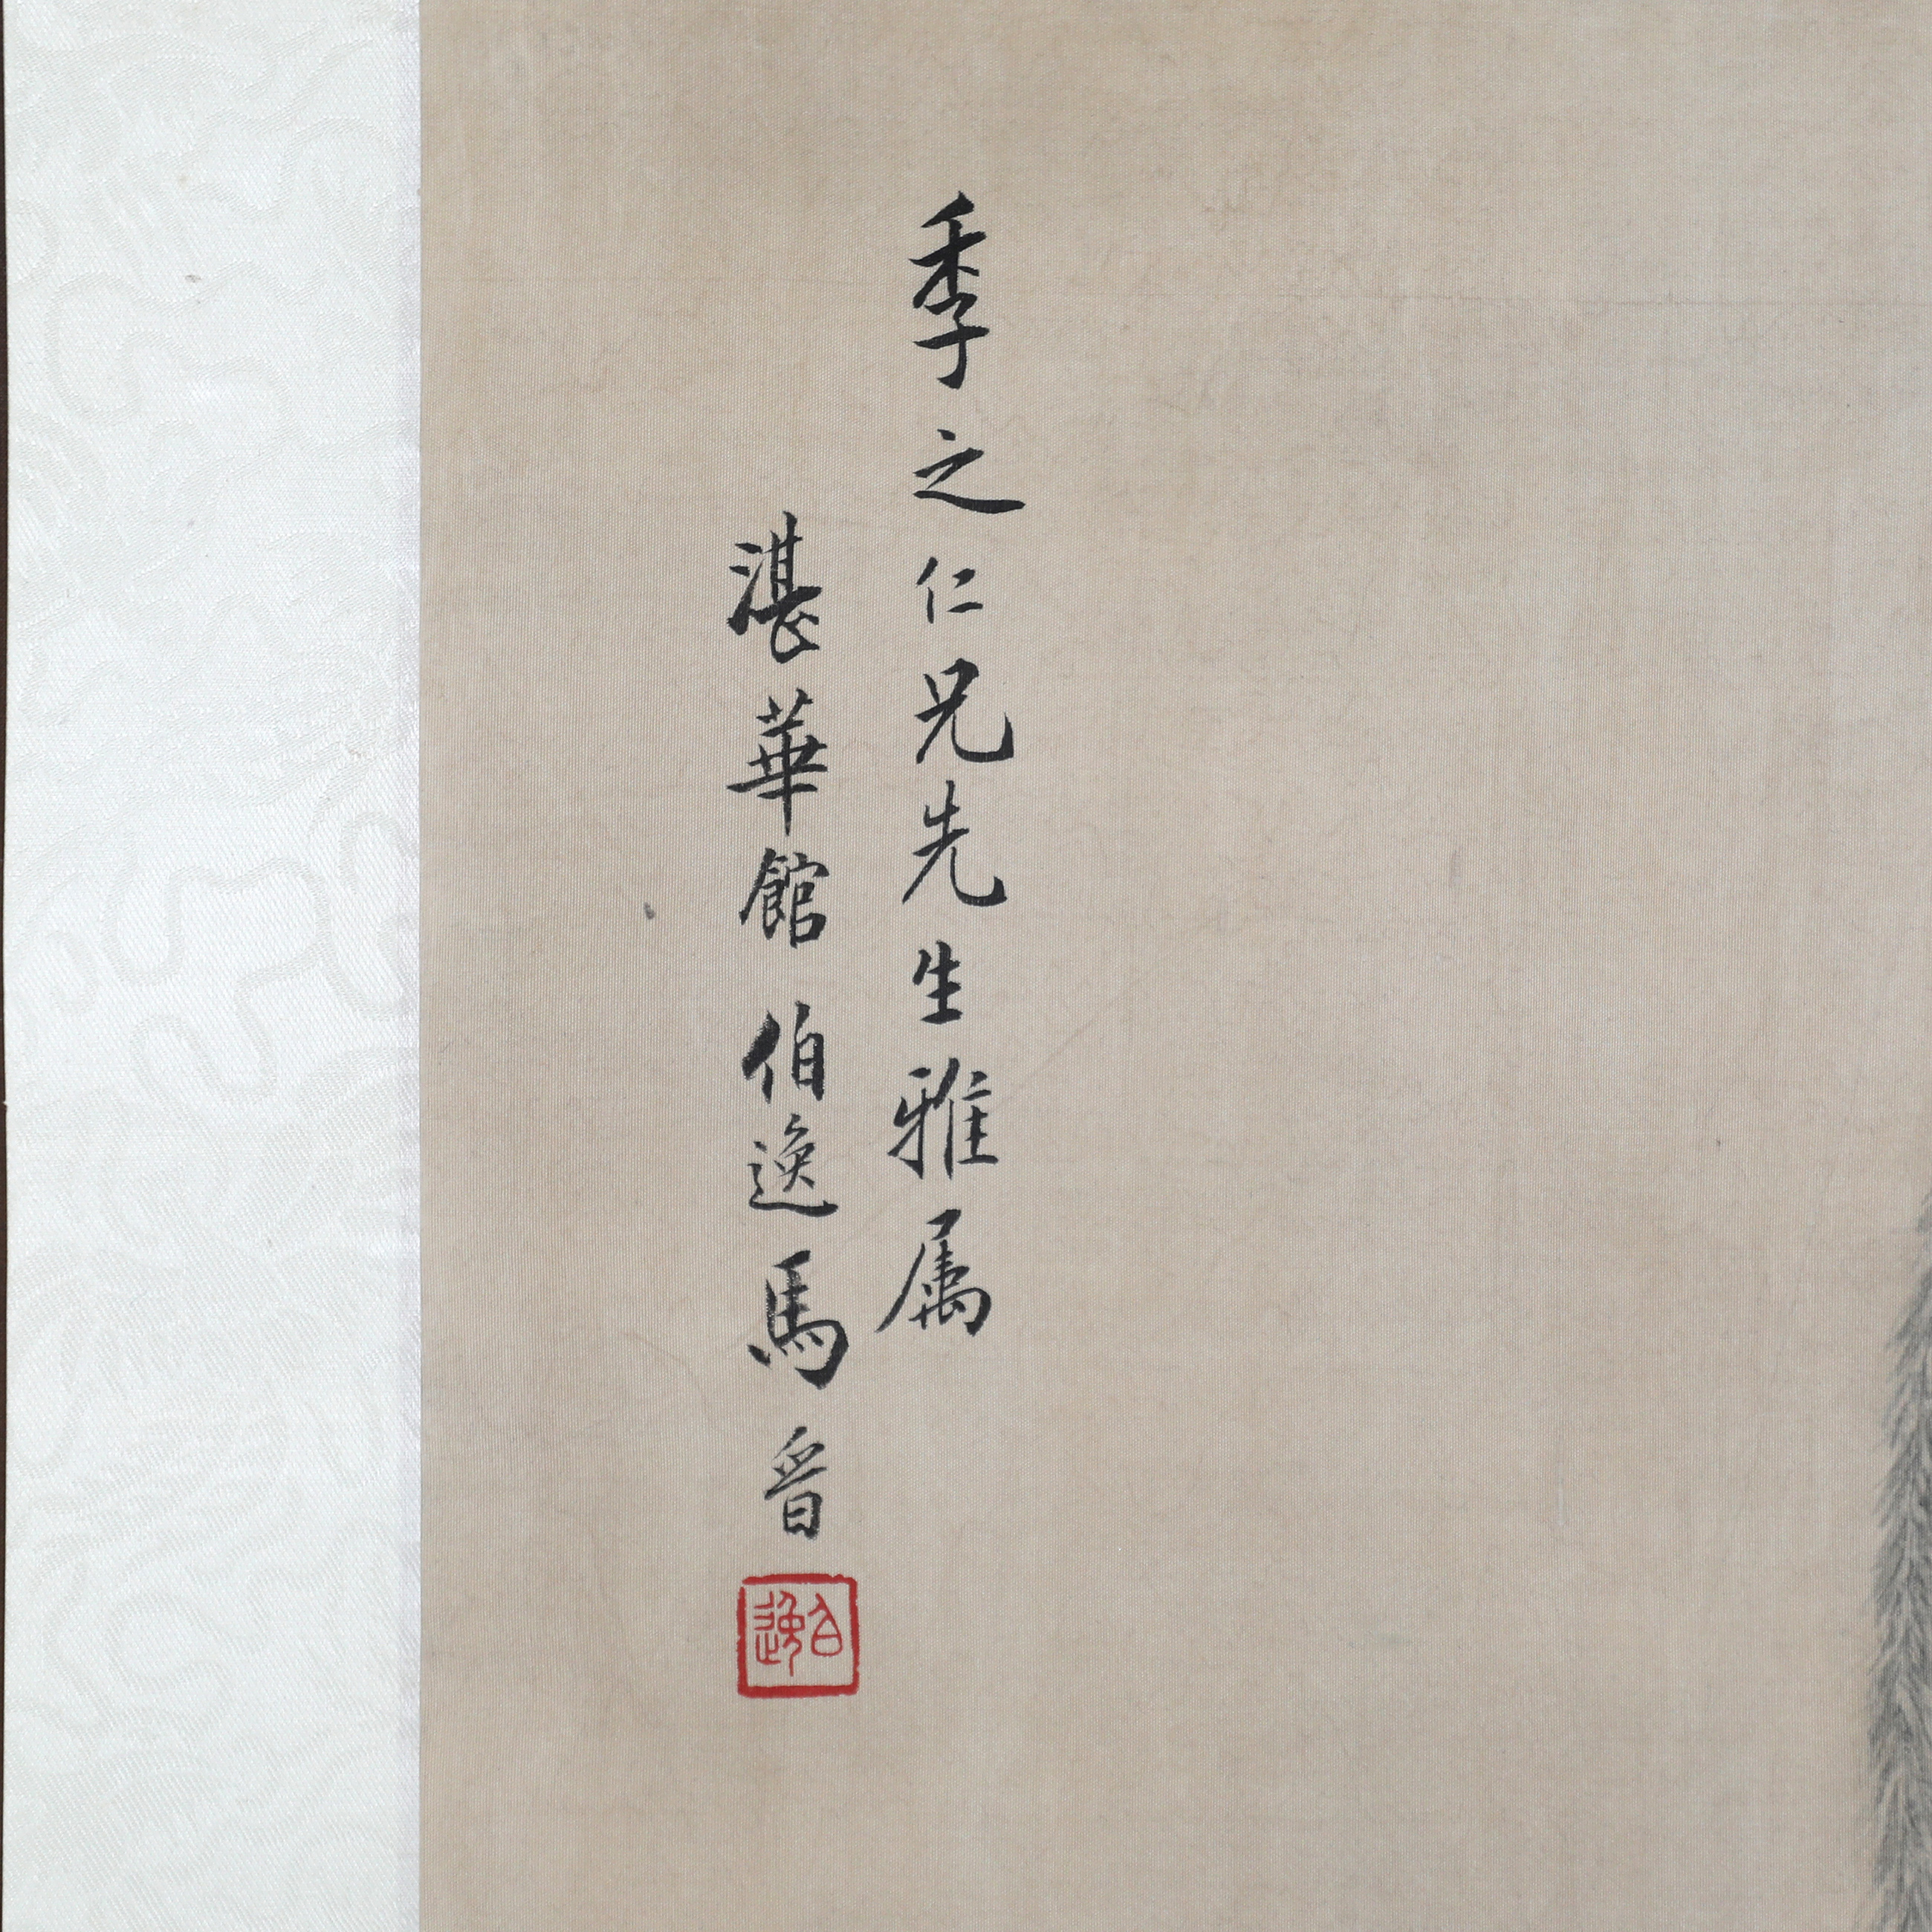 季之仁兄先生雅属
湛華館伯逸馬晋
伯逸